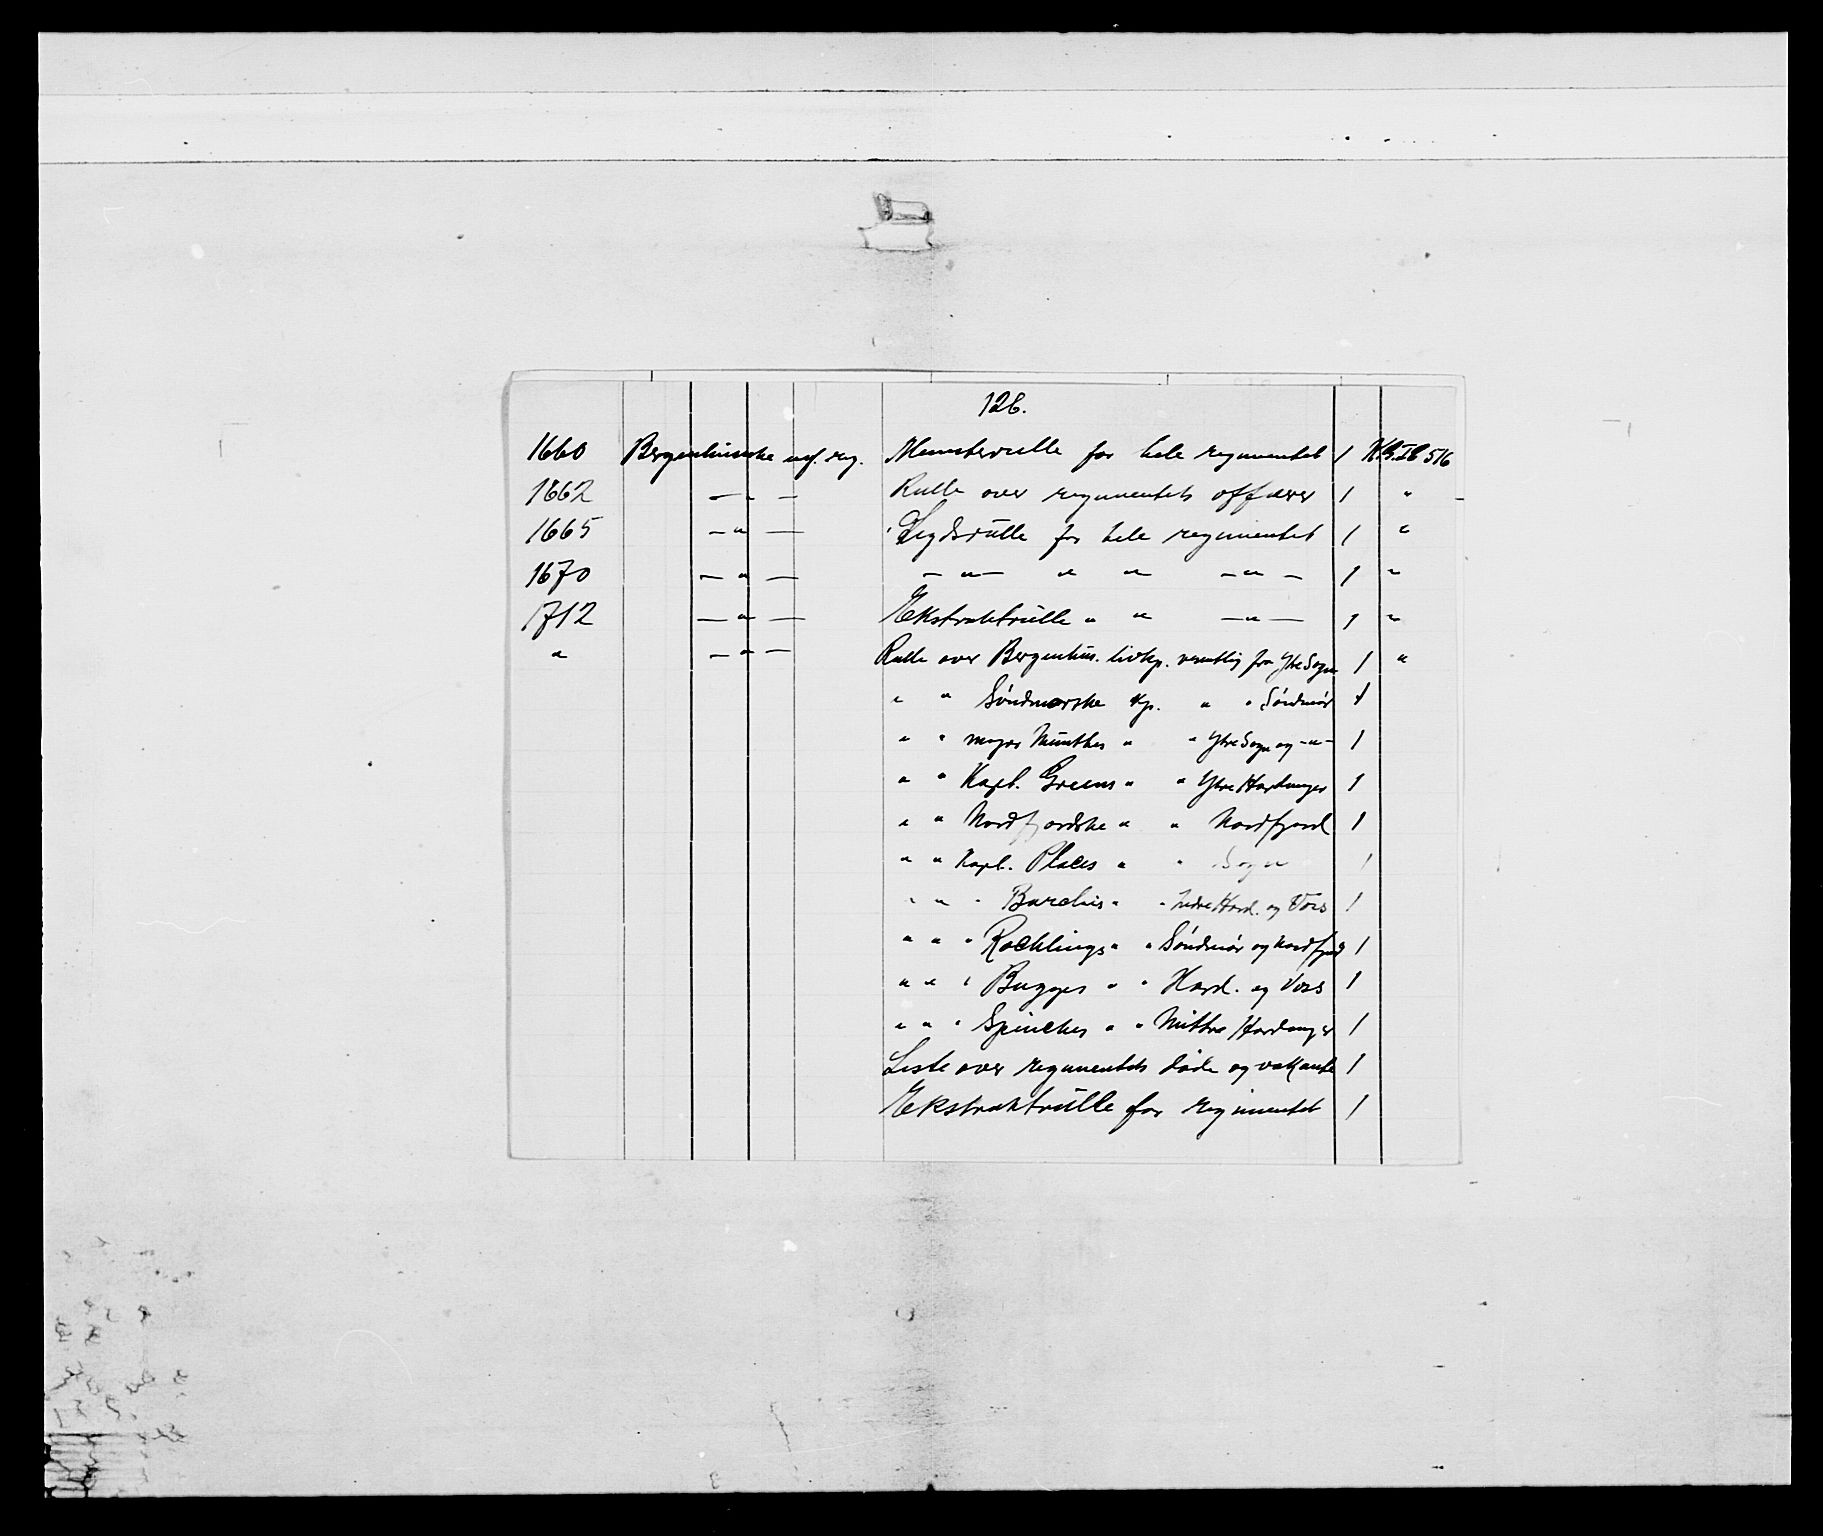 126.
1660 Bergenhusske inf. reg. Mønsterrulle for hele regimentet 1 K.B.IB 516
1662 — " — Rulle over regimentets officerer 1 "
1665 — " — Lægdsrulle for hele regimentet 1 "
1670 — " — — " — " " — " — 1 "
1712 — " — Ekstraktrulle " " — " — 1 "
" — " — Rulle over Bergenhus. livkp. vesentlig fra Ytre Sogn 1 "
" " Söndmørske kp. " " Söndmör 1
" " major Münthes " " Ytre Sogn og -"- 1
" " Kapt. Greens " " Ytre Hardanger 1
" " Nordfjordske " " Nordfjord 1
" " Kapt. Places " " Sogn 1
" " " " " Indre Hard. og Voss 1
" " " Röcklings " " Söndmör og Nordfjord 1
" " " Bugges " " Hard. og Voss 1
" " " " " Mittre Hardanger 1
Liste over regimentets døde og vakante 1
Ekstraktrulle for regimentet 1